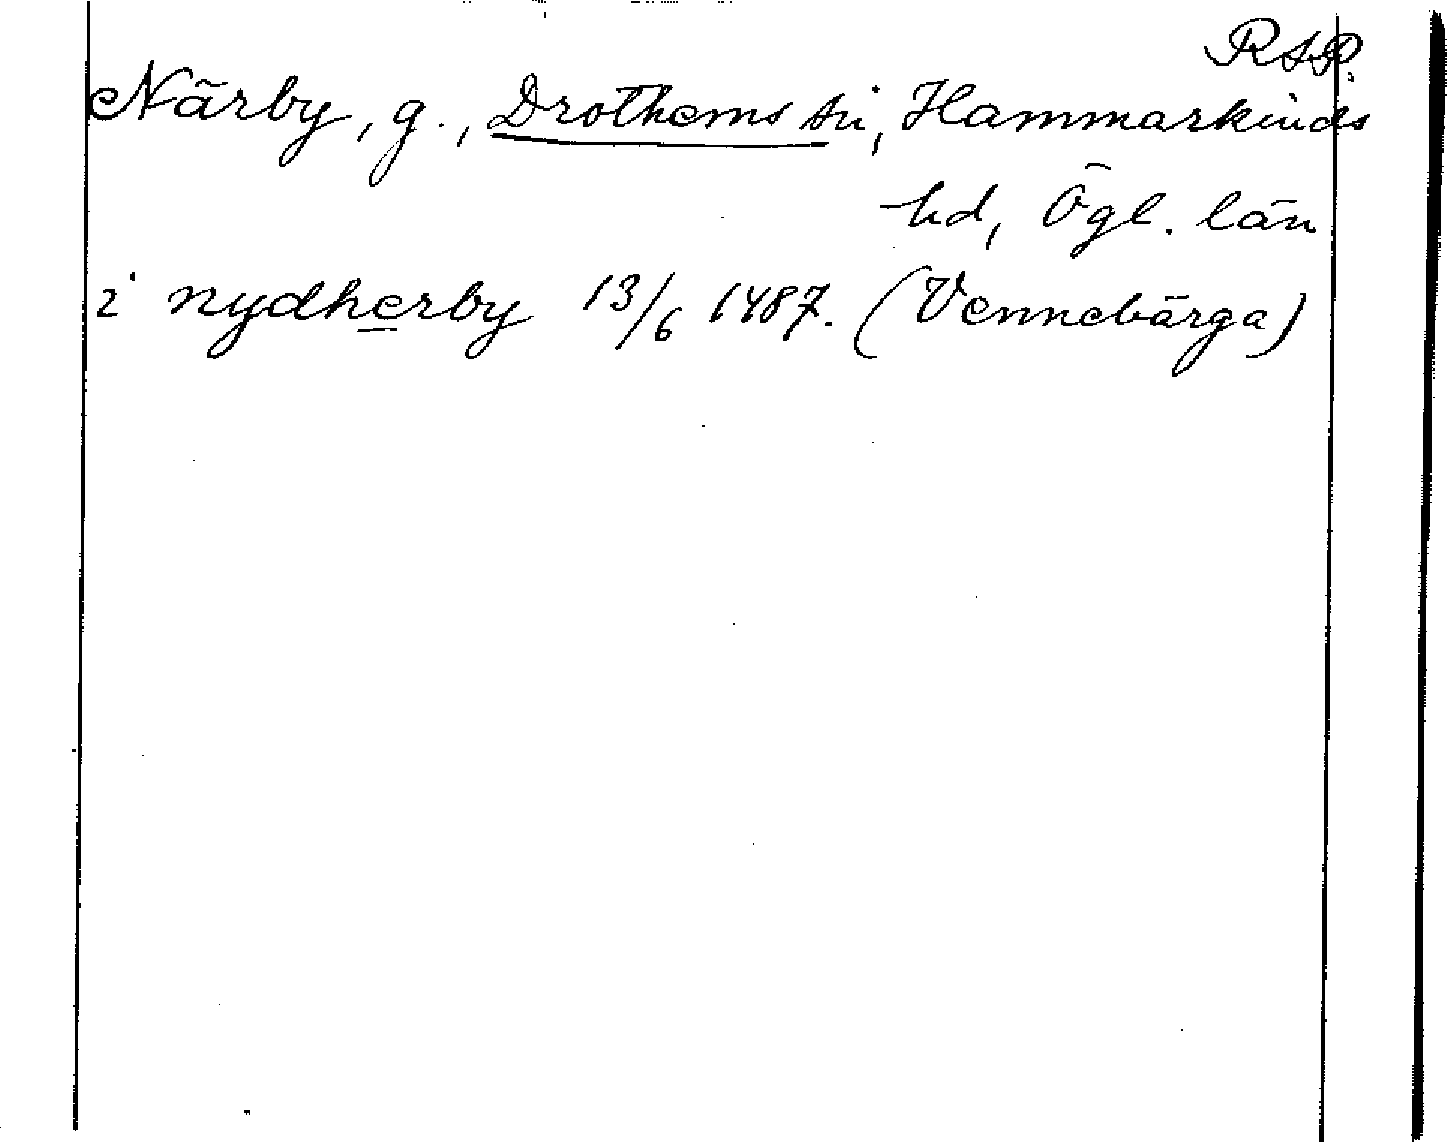 RAP.
Närby, g., Drothems sn, Hammarkinds
hd, Ögl. län
i nydherby 13/6 1487. (Vennebärga)